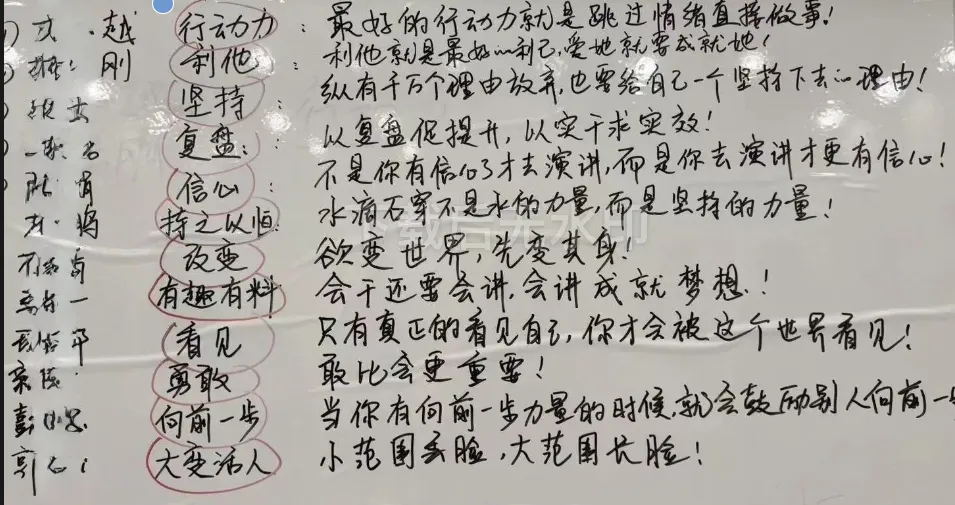 越 行动力: 最好的行动力就是跳过情绪直接做事!
刚 利他: 利他就是最好的利己,爱她就要成就她!
坚持: 纵有千万个理由放弃,也要给自己一个坚持下去的理由!
复盘: 以复盘促提升,以实干求实效!
信心: 不是你有信心了才去演讲,而是你去演讲才更有信心!
持之以恒: 水滴石穿不是水的力量,而是坚持的力量!
改变 欲变世界,先变其身!
有趣有料 会干还要会讲,会讲成就梦想!
看见 只有真正的看见自己,你才会被这个世界看见!
勇敢 敢比会更重要!
向前一步 当你有向前一步力量的时候,就会鼓励别人向前一步
大变活人 小范围丢脸,大范围长脸!